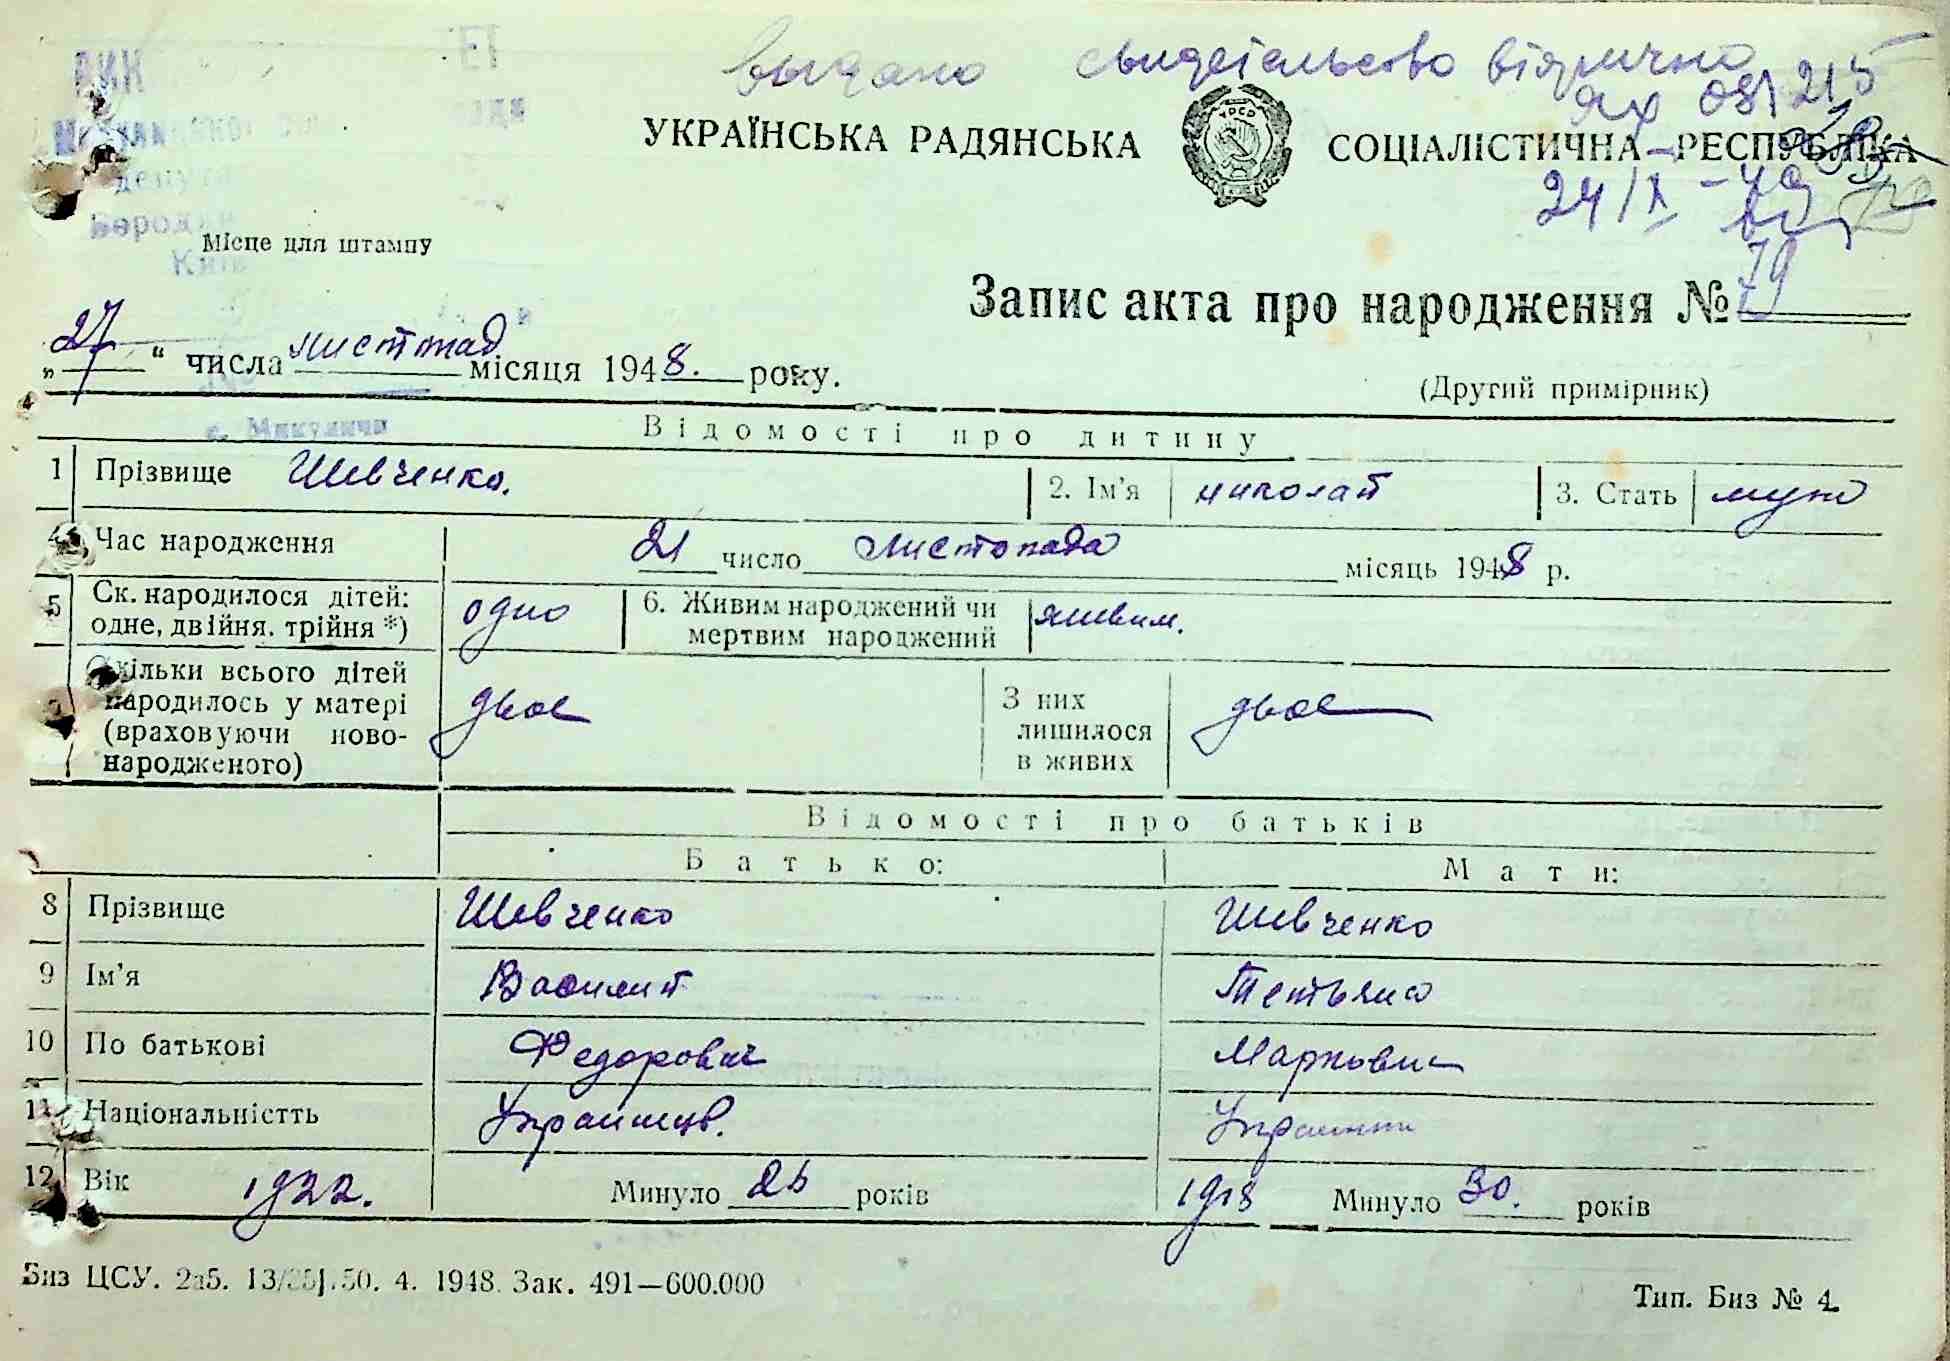 выдано свидетельство вторично
ЯХ 081215
УКРАЇНСЬКА РАДЯНСЬКА СОЦІАЛІСТИЧНА РЕСПУБЛІКА
УРСР
24/X
Місце для штампу
Запис акта про народження № 79
„27“ числа листопад місяця 1948. року.
(Другий примірник)
с. Микуличи
Відомості про дитину
1 Прізвище Шевченко. 2. Ім'я николай 3. Стать муж
Час народження 21 число листопада місяць 1948 р.
5 Ск. народилося дітей: одно 6. Живим народжений чи живим.
одне, двійня. трійня *) мертвим народжений
Скільки всього дітей
народилось у матері двое З них двое
(враховуючи ново- лишилося
народженого) в живих
Відомості про батьків
Батько: Мати:
8 Прізвище Шевченко Шевченко
9 Ім'я Василит Тетьяна
10 По батькові Федорович Марковна
11 Національністть Украинцв.
12 Вік 1922. Минуло 26 років 1918 Минуло 30. років
Биз ЦСУ. 2а5. 50. 4. 1948. Зак. 491—600.000
Тип. Биз № 4